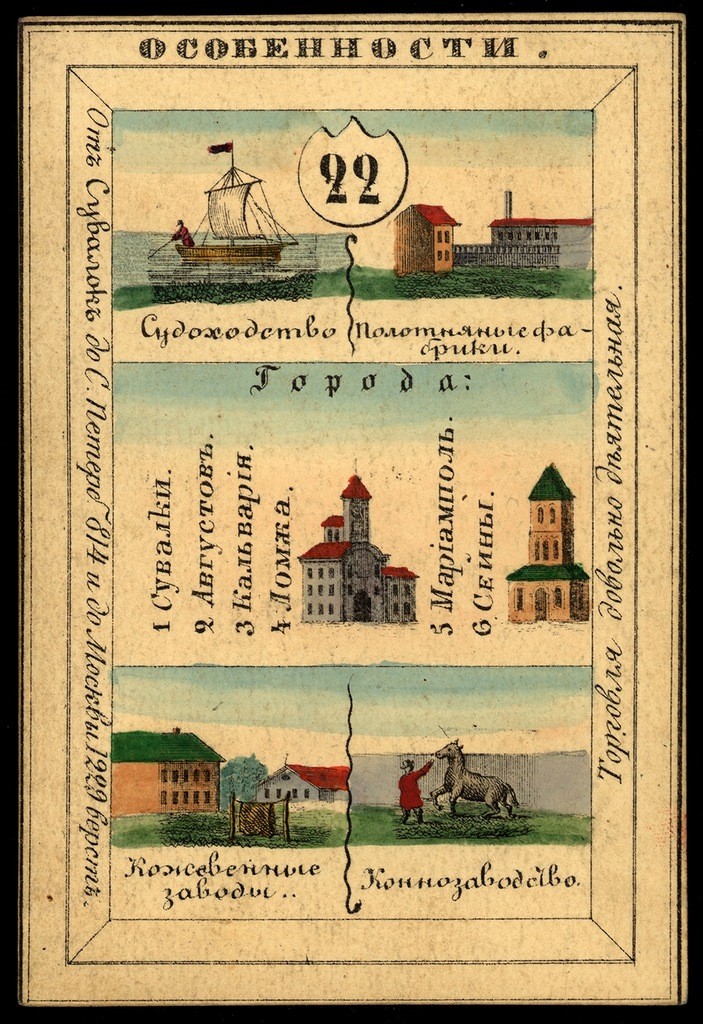 ОСОБЕННОСТИ.
22
Судоходство
Полотняные фа-
брики.
Города:
1 Сувалки.
2 Августовъ.
3 Кальварія.
4 Ломжа.
5 Маріамполь.
6 Сейны.
Кожевенные
заводы..
Коннозаводство.
Отъ Сувалокъ до С. Петерб 814 и до Москвы 1229 верстъ.
Торговля довольно дѣятельная.